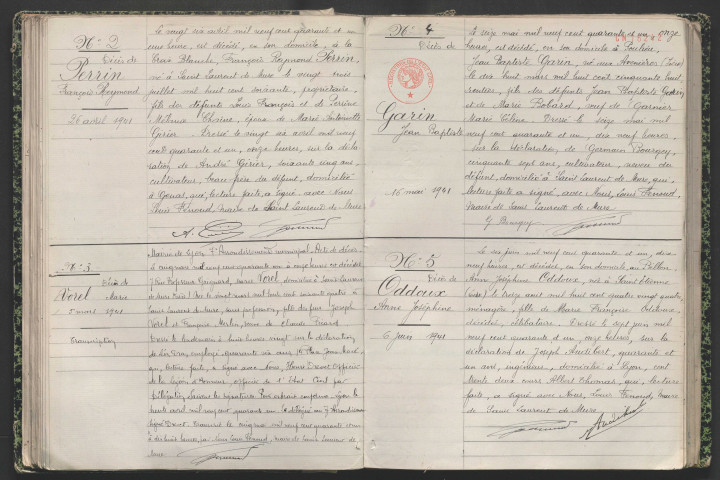 N° 2
Décès de
Perrin
François Reymond
26 avril 1941
Le vingt six avril mil neuf cent quarante et un
onze heure, est décédé, en son domicile, à la
Croix Blanche, François Reymond Perrin,
né à Saint Laurent de Mure le vingt
juillet mil huit cent soixante, propriétaire,
fils des défunts Louis François et de Perrine
époux de Marie Antoinette
Girier. Dressé le vingt six avril mil neuf
cent quarante et un, onze heures, sur la décla-
ration de André Girier, soixante cinq ans,
cultivateur, beau-père du défunt, domicilié
à Genas, qui, lecture faite, a signé avec Nous
Louis Fénoud, maire de Saint Laurent de Mure
N° 3
Décès de
Vorel Marie
mars 1941
transcription
Mairie de Lyon 7e Arrondissement municipal. Acte de décès.
Le cinq mars mil neuf cent quarante un à onze heures est décédée
7 Rue Professeur Grignard, Marie Vorel, domiciliée à Saint Laurent
de Mure née le vingt mars mil huit cent soixante quatre à
Saint Laurent de Mure, sans profession, fille de feu Joseph
Vorel et Françoise Merlin, veuve de Claude
Dressé le lendemain à huit heures vingt sur la déclaration
de employé, quarante six ans, Place Jean Macé
qui, lecture faite, a signé avec Nous, Officier
de la Légion d'Honneur officier de l'Etat Civil par
délégation. Suivent les signatures. Pour extrait conforme. Lyon le
trente avril mil neuf cent quarante un
quarante un
à dix huit heures, par Nous Louis Fénoud, maire de Saint Laurent de
Mure
N° 4
Décès de
Garin
Jean Baptiste
16 mai 1941
Le seize mai mil neuf cent quarante et un, onze
heures, est décédé, en son domicile à Poulieu,
Jean Baptiste Garin, né aux Avenières (Isère)
le dix huit mars mil huit cent cinquante huit,
rentier, fils des défunts Jean Baptiste Garin
et de Marie Bobard, veuf de Garnier
Marie Céline. Dressé le seize mai mil
neuf cent quarante et un, dix neuf heures,
sur la déclaration, de Germain Bourgey,
cinquante sept ans, cultivateur, neveu du
défunt, domicilié à Saint Laurent de Mure, qui,
lecture faite a signé, avec Nous, Louis Fénoud,
maire de Saint Laurent de Mure
G Bourgey
N° 5
Décès de
Oddoux
Anne Joséphine
6 juin 1941
Le six juin mil neuf cent quarante et un, dix
neuf heures, est décédée, en son domicile au Billon,
Anne Joséphine Oddoux, née à Saint Etienne
le seize août mil huit cent quatre vingt quatre,
ménagère, fille de Marie Françoise Oddoux
décédée, célibataire. Dressé le sept juin mil
neuf cent quarante et un, onze heures, sur la
déclaration de Joseph Audibert, quarante et
un ans, ingénieur, domicilié à Lyon, cent
trente deux cours Albert Thomas, qui, lecture
faite, a signé avec Nous, Louis Fénoud, maire
de Saint Laurent de Mure.
Audibert